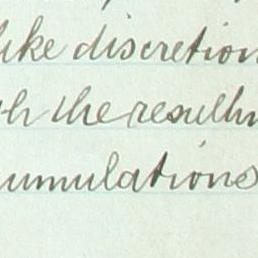 like discretion
th the resultin
cumulations